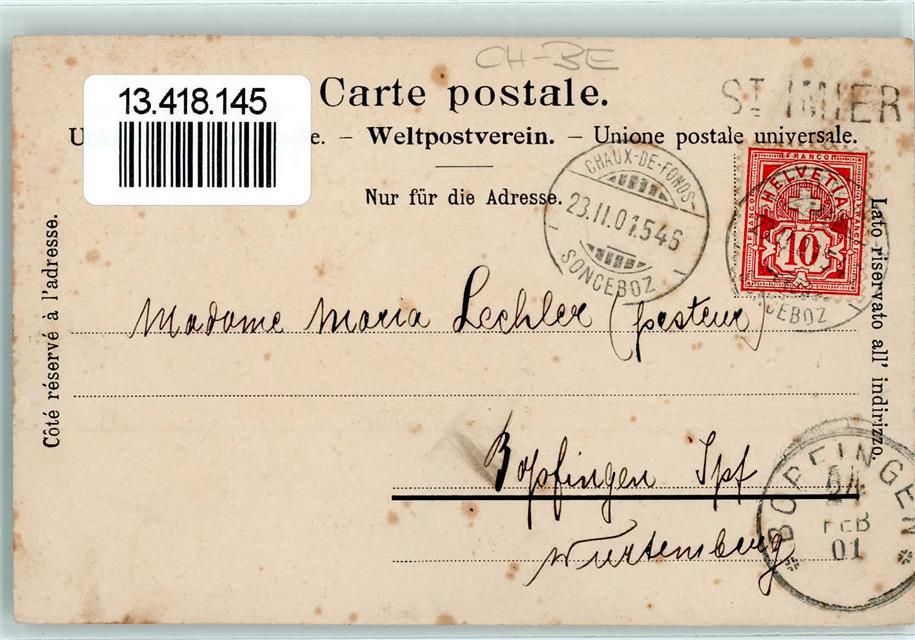 CH-BE
13.418.145
Carte postale.
ST IMIER
e. – Weltpostverein. – Unione postale universale.
Nur für die Adresse.
CHAUX-DE-FONDS-
23.II.01.546
SONCEBOZ
FRANCO
HELVETIA
FRANCO
FRANCO
10
CEBOZ
Côté réservé à l'adresse.
Lato riservato all' indirizzo.
Madame Maria Lechler (pasteur)
Bopfingen Ipf
Wurtemberg
BOPFINGEN
24
FEB
01